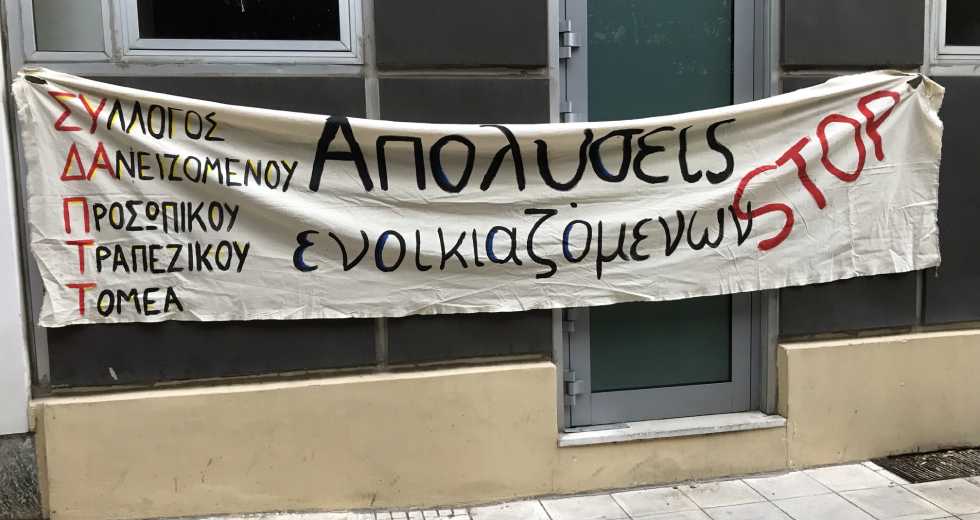 ΣΥΛΛΟΓΟΣ
ΔΑΝΕΙΖΟΜΕΝΟΥ
ΠΡΟΣΩΠΙΚΟΥ
ΤΡΑΠΕΖΙΚΟΥ
ΤΟΜΕΑ
Απολύσεις
ενοικιαζόμενων
STOP